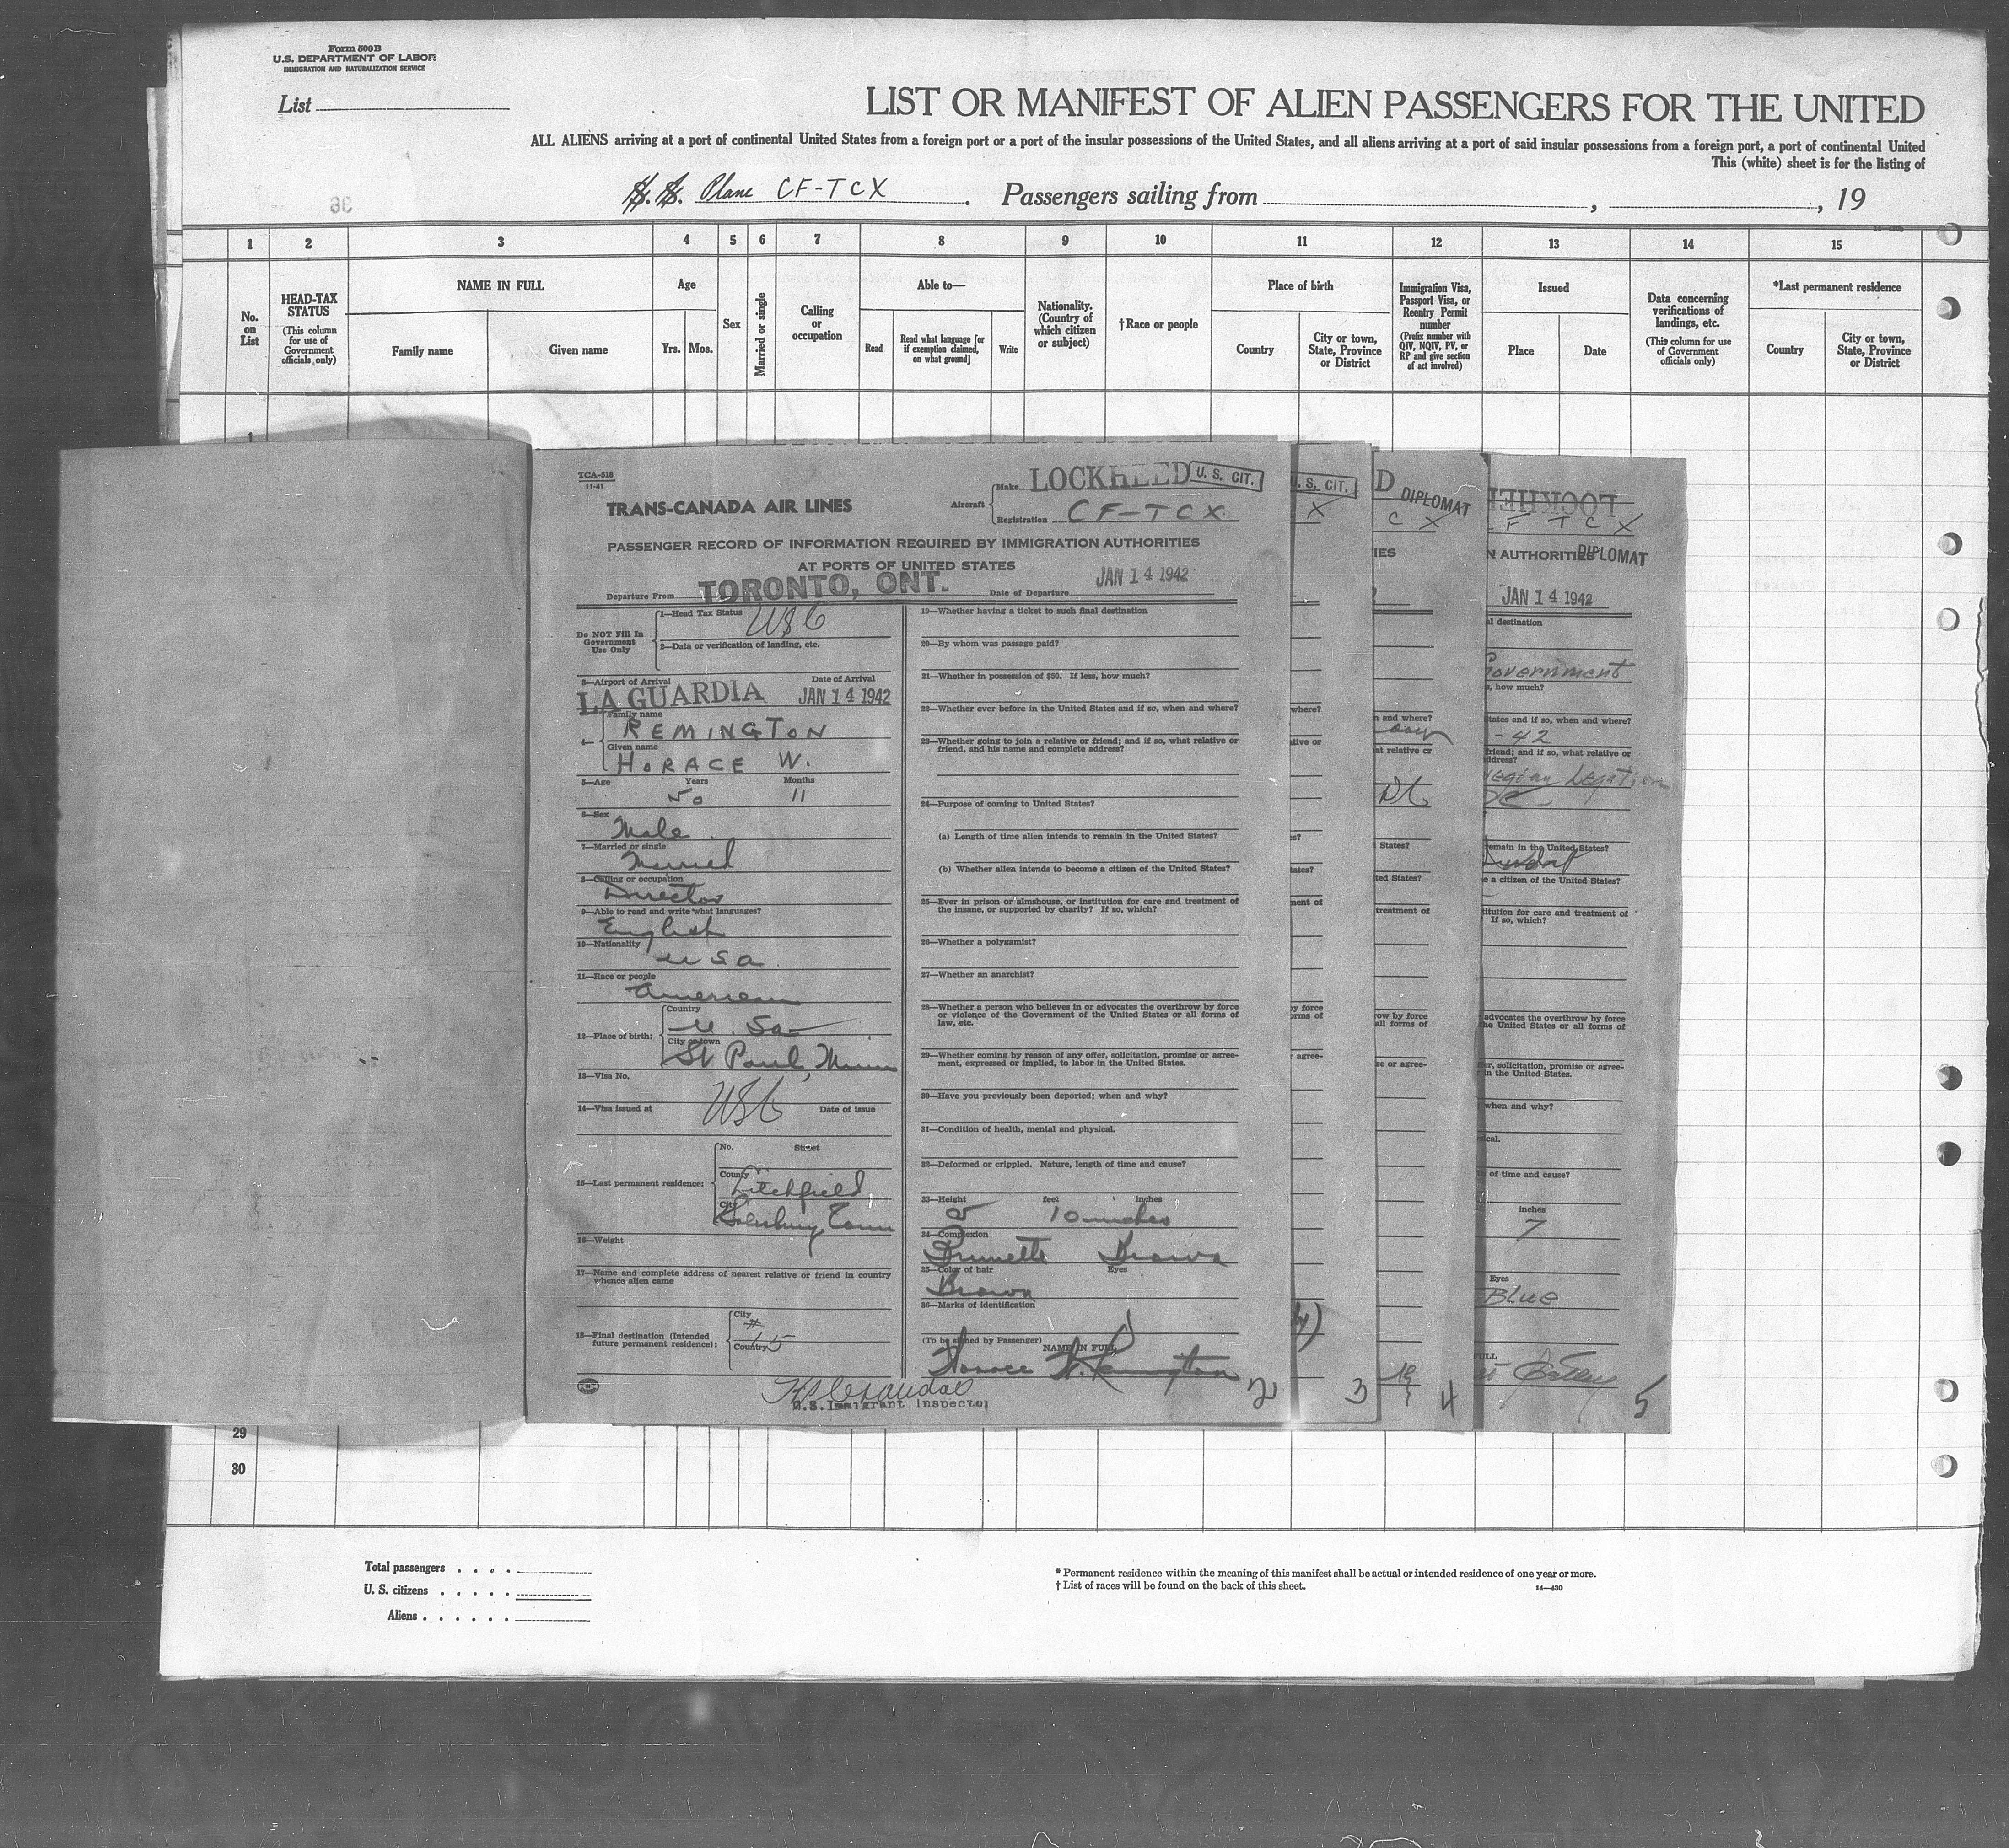 Form 500B
U.S. DEPARTMENT OF LABOR
IMMIGRATION AND NATURALIZATION SERVICE
List
LIST OR MANIFEST OF ALIEN PASSENGERS FOR THE UNITED
ALL ALIENS arriving at a port of continental United States from a foreign port or a port of the insular possessions of the United States, and all aliens arriving at a port of said insular possessions from a foreign port, a port of continental United
This (white) sheet is for the listing of
S. S. Plane CF-TCX. Passengers sailing from , , 19
1 2 3 4 5 6 7 8 9 10 11 12 13 14 15
No. on List
HEAD-TAX STATUS
(This column for use of Government officials only)
NAME IN FULL
Family name
Given name
Age
Yrs. Mos.
Sex
Married or single
Calling or occupation
Able to—
Read
Read what language [or if exemption claimed, on what ground]
Write
Nationality. (Country of which citizen or subject)
†Race or people
Place of birth
Country
City or town, State, Province or District
Immigration Visa, Passport Visa, or Reentry Permit number
(Prefix number with QIV, NQIV, PV, or RP and give section of act involved)
Issued
Place
Date
Data concerning verifications of landings, etc.
(This column for use of Government officials only)
*Last permanent residence
Country
City or town, State, Province or District
1
TCA-518
11-41
TRANS-CANADA AIR LINES
Aircraft
Make LOCKHEED
U. S. CIT.
Registration CF-TCX
PASSENGER RECORD OF INFORMATION REQUIRED BY IMMIGRATION AUTHORITIES
AT PORTS OF UNITED STATES
Departure From TORONTO, ONT. Date of Departure JAN 14 1942
Do NOT Fill In Government Use Only
1—Head Tax Status USC
2—Data or verification of landing, etc.
3—Airport of Arrival Date of Arrival
LA GUARDIA JAN 14 1942
4— Family name
REMINGTON
Given name
HORACE W.
5—Age Years Months
50 11
6—Sex
Male
7—Married or single
Married
8—Calling or occupation
Director
9—Able to read and write what languages?
English
10—Nationality
USA
11—Race or people
American
12—Place of birth:
Country
U.S.A
City or town
St Paul, Minn
13—Visa No.
USC
14—Visa issued at Date of issue
15—Last permanent residence:
No. Street
County
Litchfield
City
Salisbury, Conn
16—Weight
17—Name and complete address of nearest relative or friend in country
whence alien came
18—Final destination (Intended
future permanent residence):
City
#
15
Country
U.S. Immigrant Inspector
19—Whether having a ticket to such final destination
20—By whom was passage paid?
21—Whether in possession of $50. If less, how much?
22—Whether ever before in the United States and if so, when and where?
23—Whether going to join a relative or friend; and if so, what relative or
friend, and his name and complete address?
24—Purpose of coming to United States?
(a) Length of time alien intends to remain in the United States?
(b) Whether alien intends to become a citizen of the United States?
25—Ever in prison or almshouse, or institution for care and treatment of
the insane, or supported by charity? If so, which?
26—Whether a polygamist?
27—Whether an anarchist?
28—Whether a person who believes in or advocates the overthrow by force
or violence of the Government of the United States or all forms of
law, etc.
29—Whether coming by reason of any offer, solicitation, promise or agree-
ment, expressed or implied, to labor in the United States.
30—Have you previously been deported; when and why?
31—Condition of health, mental and physical.
32—Deformed or crippled. Nature, length of time and cause?
33—Height feet inches
5 10 inches
34—Complexion
Brunette Brown
35—Color of hair Eyes
Brown
36—Marks of identification
(To be signed by Passenger) NAME IN FULL
Horace W. Remington
2
S. CIT.
X
where?
3
D DIPLOMAT
C X
IES
n and where?
at relative or
States?
ted States?
treatment of
row by force
all forms of
se or agree-
4
LOCKHEED
F TCX
N AUTHORITIES DIPLOMAT
JAN 14 1942
al destination
Government
s, how much?
tates and if so, when and where?
-42
friend; and if so, what relative or
ddress?
Legation
remain in the United States?
e a citizen of the United States?
titution for care and treatment of
If so, which?
advocates the overthrow by force
the United States or all forms of
er, solicitation, promise or agree-
in the United States.
when and why?
ical.
of time and cause?
inches
7
Eyes
Blue
FULL
5
29
30
Total passengers
U. S. citizens
Aliens
* Permanent residence within the meaning of this manifest shall be actual or intended residence of one year or more.
† List of races will be found on the back of this sheet. 14—430